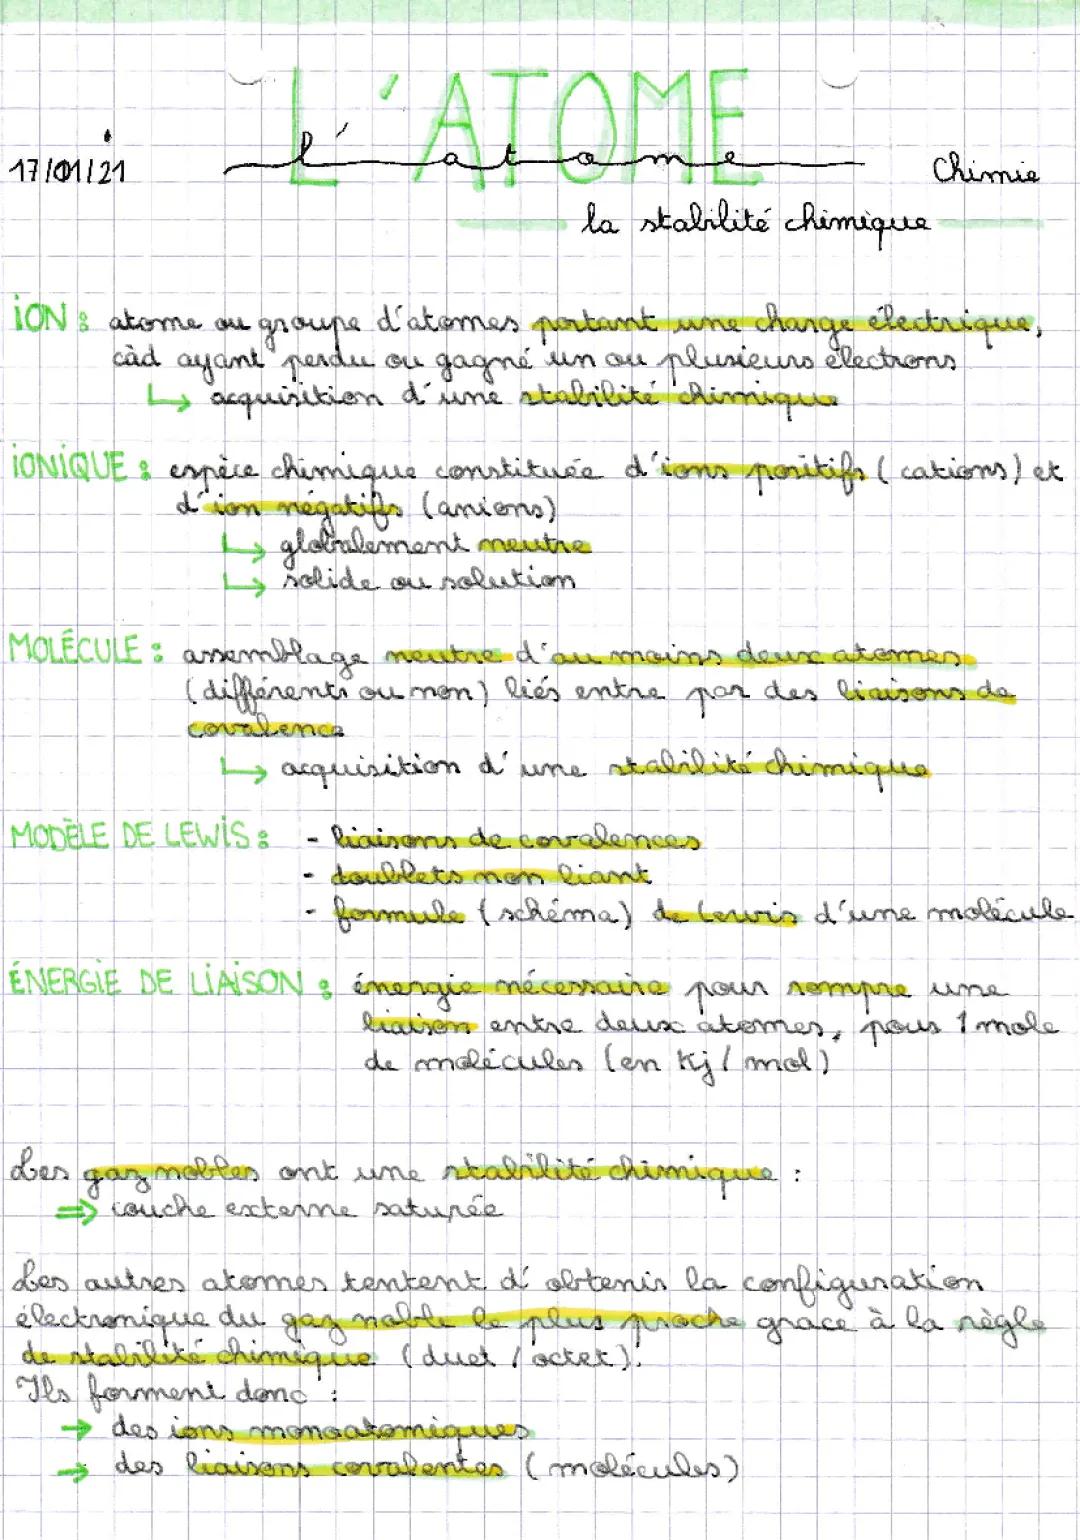 L'ATOME
17/01/21
l'atome
Chimie
la stabilité chimique
iON : atome ou groupe d'atomes portant une charge électrique,
càd ayant perdu ou gagné un ou plusieurs électrons
↳ acquisition d'une stabilité chimique
iONiQUE : espèce chimique constituée d'ions positifs (cations) et
d'ion négatifs (anions)
↳ globalement neutre
↳ solide ou solution
MOLÉCULE : assemblage neutre d'au moins deux atomes
(différents ou non) liés entre par des liaisons de
covalence
↳ acquisition d'une stabilité chimique
MODÈLE DE LEWiS : - liaisons de covalences
- doublets non liant
- formule (schéma) de Lewis d'une molécule
ÉNERGiE DE LiAiSON : énergie nécessaire pour rompre une
liaison entre deux atomes, pour 1 mole
de molécules (en Kj / mol)
Les gaz nobles ont une stabilité chimique :
⇒ couche externe saturée
Les autres atomes tentent d'obtenir la configuration
électronique du gaz noble le plus proche grace à la règle
de stabilité chimique (duet / octet).
Ils forment donc :
→ des ions monoatomiques
→ des liaisons covalentes (molécules)